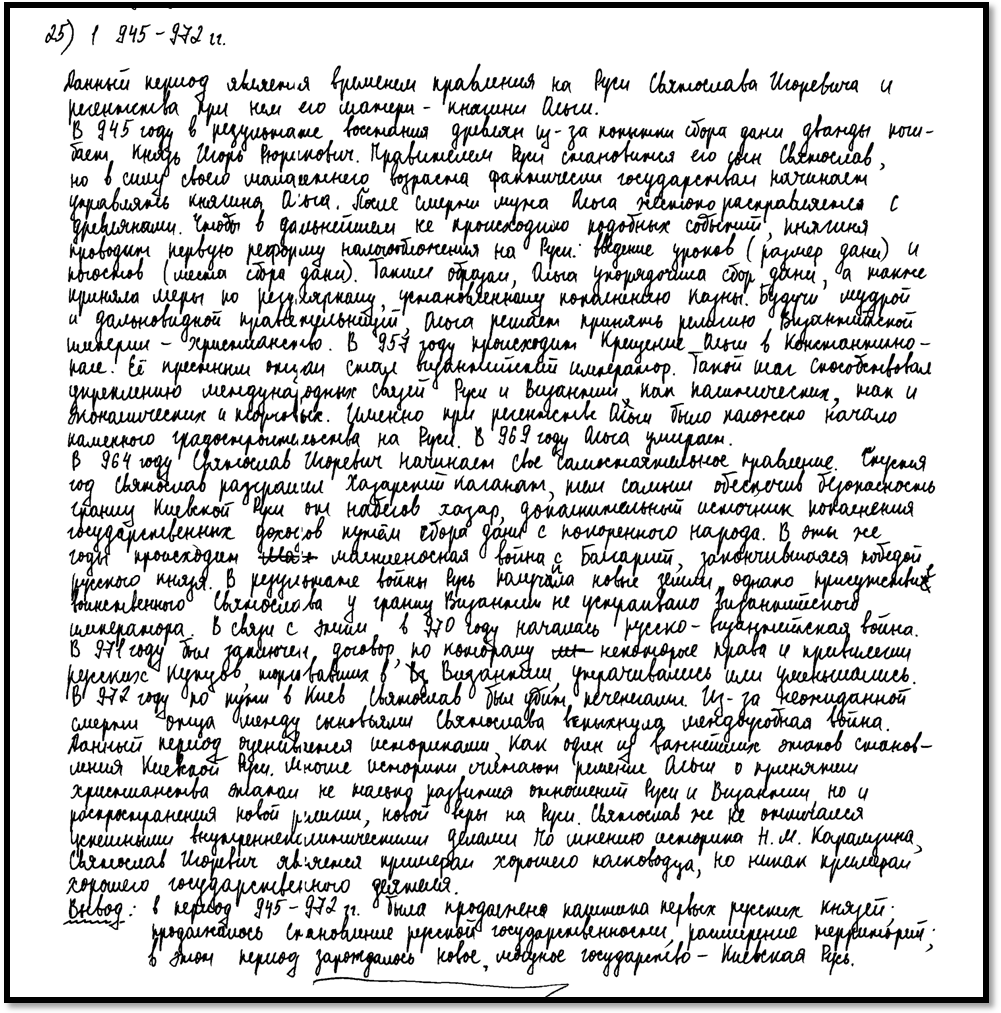 25) 1 945 – 972 гг.
Данный период является временем правления на Руси Святослава Игоревича и
регентства при нем его матери – княгини Ольги.
В 945 году в результате восстания древлян из-за попытки сбора дани дважды поги-
бает князь Игорь Рюрикович. Правителем Руси становится его сын Святослав,
но в силу своего малолетнего возраста фактически государством начинает
управлять княгиня Ольга. После смерти мужа Ольга жестоко расправляется с
древлянами. Чтобы в дальнейшем не происходило подобных событий, княгиня
проводит первую реформу налогообложения на Руси: введение уроков (размер дани) и
погостов (места сбора дани). Таким образом, Ольга упорядочила сбор дани, а также
приняла меры по регулярному, установленному пополнению казны. Будучи мудрой
и дальновидной правительницей, Ольга решает принять религию Византийской
империи – христианство. В 957 году происходит Крещение Ольги в Константино-
поле. Её крестным отцом стал византийский император. Такой шаг способствовал
укреплению международных связей Руси и Византии, как политических, так и
экономических и торговых. Именно при регентстве Ольги было положено начало
каменного градостроительства на Руси. В 969 году Ольга умирает.
В 964 году Святослав Игоревич начинает свое самостоятельное правление. Спустя
год Святослав разгромил Хазарский каганат, тем самым обеспечив безопасность
границ Киевской Руси от набегов хазар, дополнительный источник пополнения
государственных доходов путём сбора дани с покоренного народа. В эти же
годы происходит молниеносная война с Болгарией, закончившаяся победой
русского князя. В результате войны Русь получала новые земли, однако присутствие
воинственного Святослава у границ Византии не устраивало византийского
императора. В связи с этим в 970 году началась русско-византийская война.
В 971 году был заключен договор, по которому некоторые права и привилегии
русских купцов, торговавших в Византии, утрачивались или уменьшались.
В 972 году по пути в Киев Святослав был убит печенегами. Из-за неожиданной
смерти отца между сыновьями Святослава вспыхнула междоусобная война.
Данный период оценивается историками, как один из важнейших этапов станов-
ления Киевской Руси. Многие историки считают решение Ольги о принятии
христианства этапом не только развития отношений Руси и Византии, но и
распространения новой религии, новой веры на Руси. Святослав же не отличался
успешными внутриполитическими делами. По мнению историка Н.М. Карамзина,
Святослав Игоревич является примером хорошего полководца, но никак примером
хорошего государственного деятеля.
Вывод: в период 945–972 гг. была продолжена политика первых русских князей;
продолжалось становление русской государственности, расширение территорий;
в этот период зарождалось новое, мощное государство – Киевская Русь.